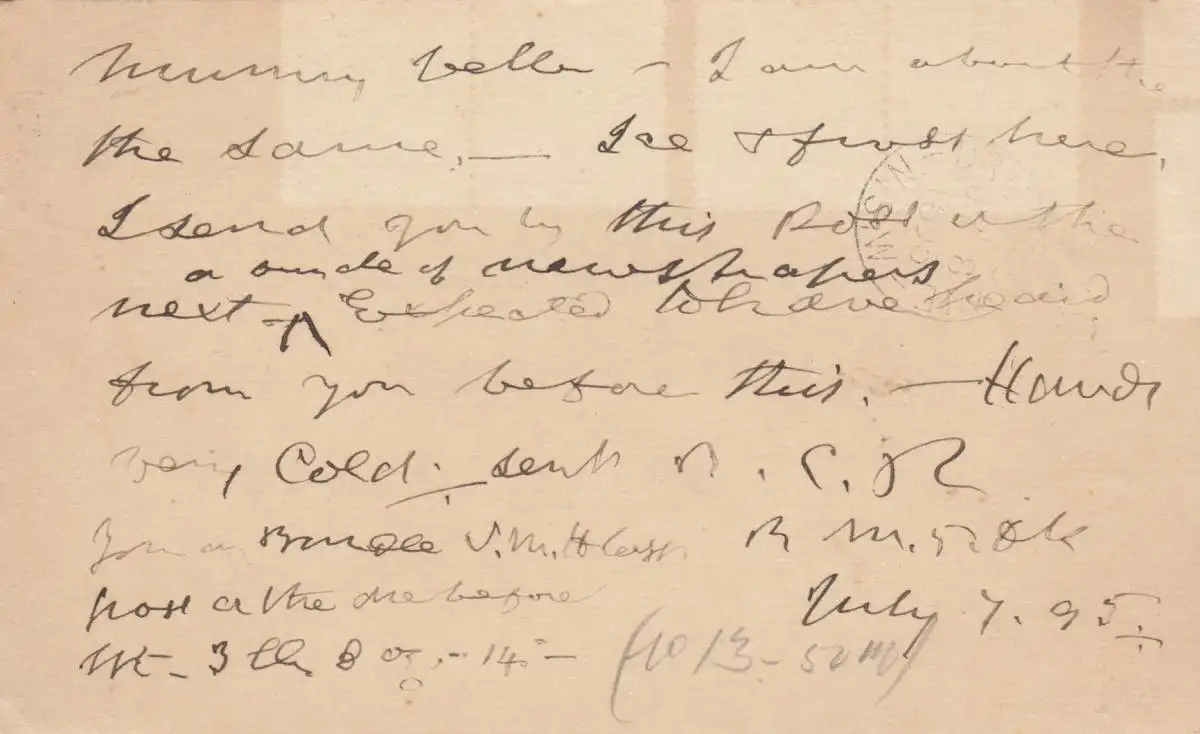 Mummy better – I am about the
the same. — Ice & frost here,
I send you by this Post or the
a bundle of newspapers
next – ^ Expected to have heard
from you before this. — Hands
very Cold. sent
you a Bundle
post or the one before
July 7. 95.
Wt – 3 lb 8 oz. –